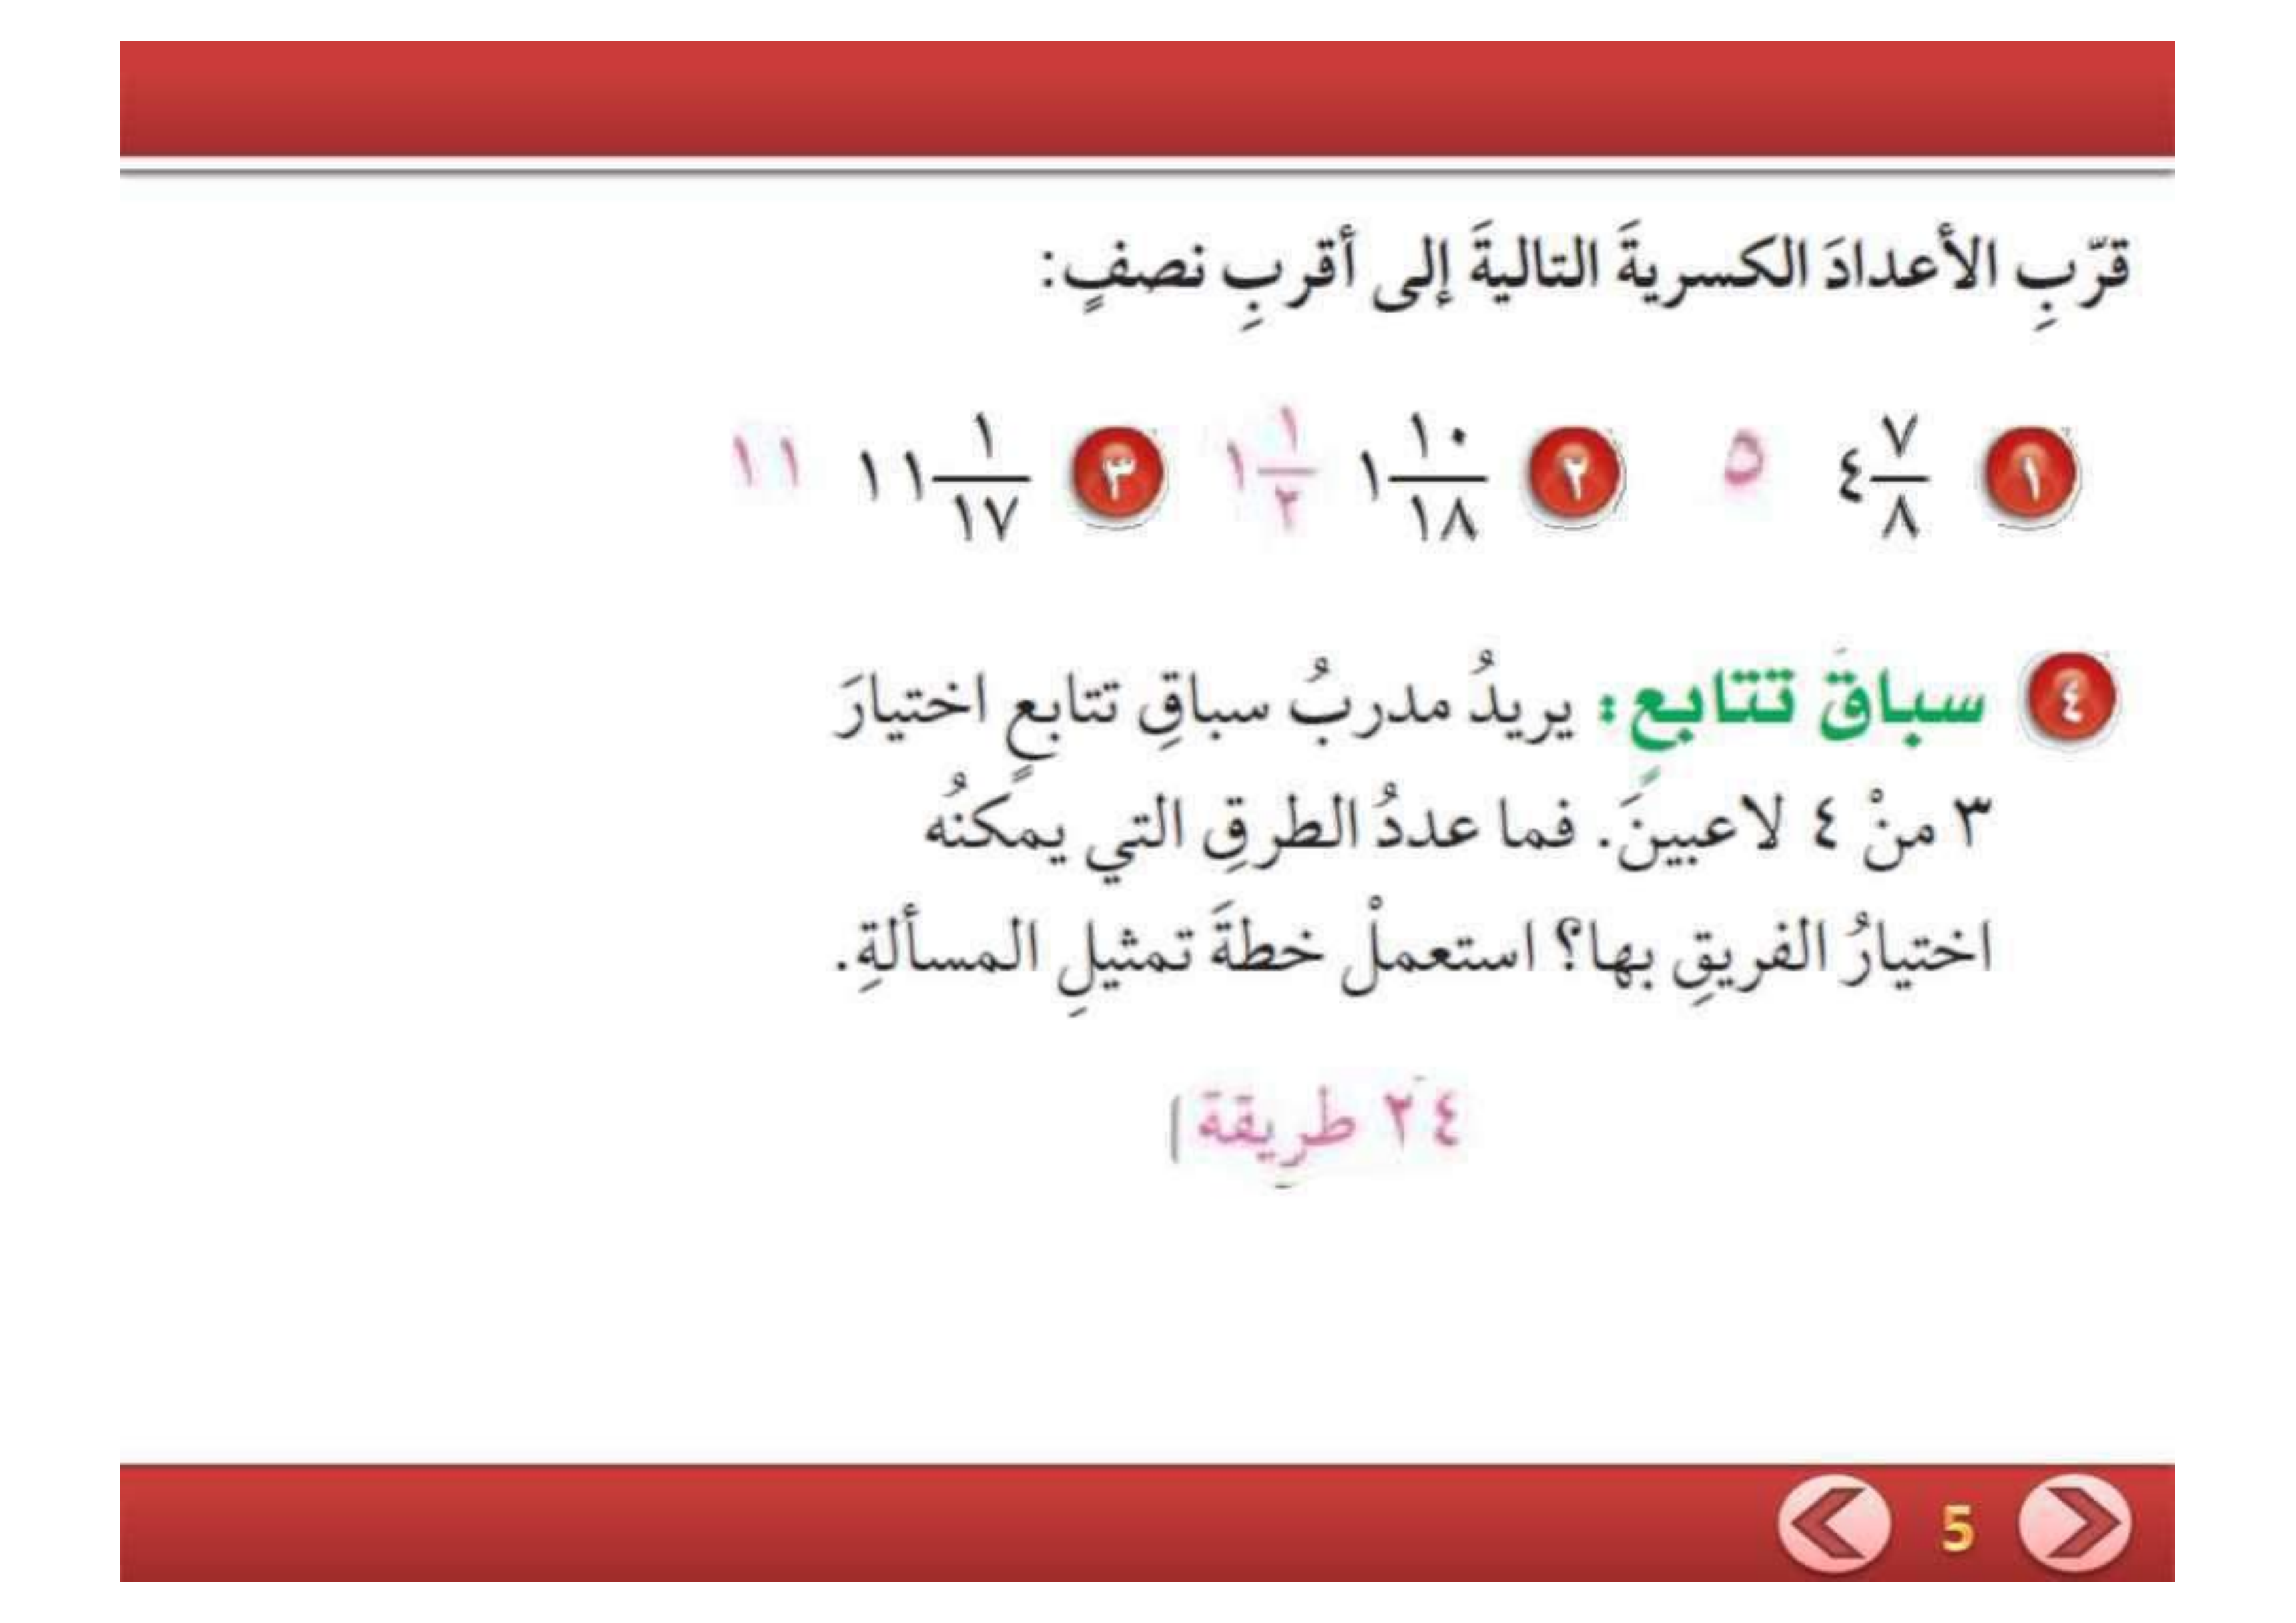 قرّبِ الأعدادَ الكسريةَ التاليةَ إلى أقربِ نصفٍ:
١ ٤ ٧/٨ ٥ ٢ ١ ١٠/١٨ ١ ١/٢ ٣ ١١ ١/١٧ ١١
٤ سباقَ تتابعٍ: يريدُ مدربُ سباقِ تتابعٍ اختيارَ
٣ منْ ٤ لاعبينَ. فما عددُ الطرقِ التي يمكنُه
اختيارُ الفريقِ بها؟ استعملْ خطةَ تمثيلِ المسألةِ.
٢٤ طريقة
5